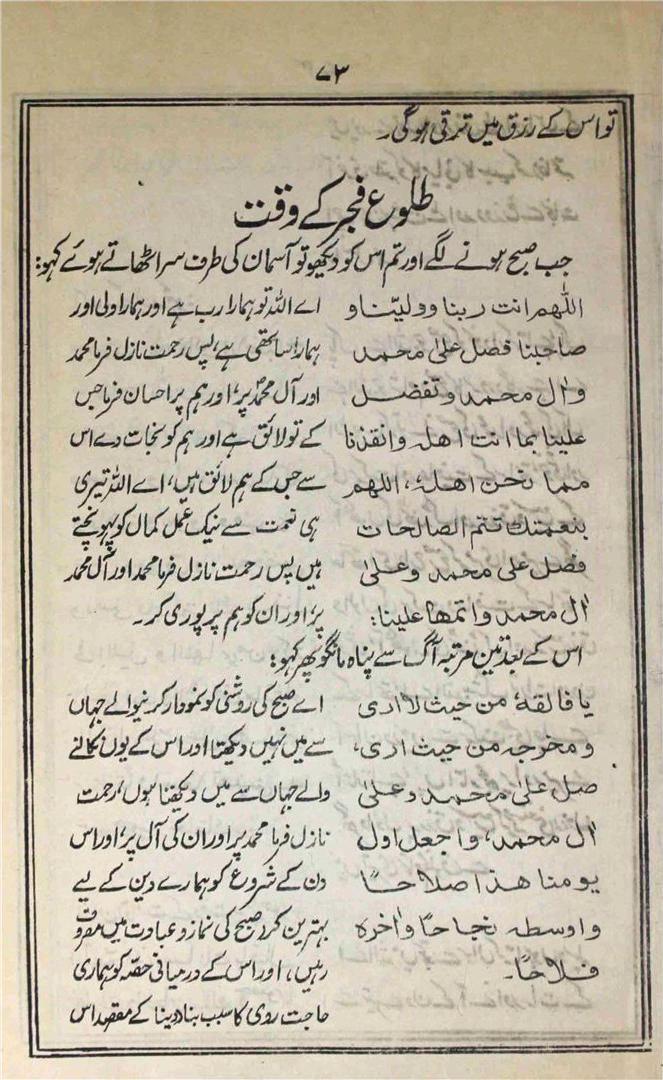 ۷۳
تو اس کے رزق میں ترقی ہوگی۔
طلوع فجر کے وقت
جب صبح ہونے لگے اور تم اس کو دیکھو تو آسمان کی طرف سر اٹھاتے ہوئے کہو:
اللهم انت ربنا وولیّنا و
صاحبنا فصل علیٰ محمد
واٰل محمد وتفضل
علینا بما انت اھلہ وانقذنا
مما نحن اھلہ، اللھم
بنعمتك تتم الصالحات
فصل علی محمد وعلیٰ
اٰل محمد واتمھا علینا:
اے اللہ تو ہمارا رب ہے اور ہمارا ولی اور
ہمارا ساتھی ہے، پس رحمت نازل فرما محمد
اور آل محمدؐ پر، اور ہم پر احسان فرما جس
کے تو لائق ہے اور ہم کو نجات دے اس
سے جس کے ہم لائق ہیں، اے اللہ تیری
ہی نعمت سے نیک عمل کمال کو پہونچتے
ہیں پس رحمت نازل فرما محمد اور آل محمد
پر، اور ان کو ہم پر پوری کر۔
اس کے بعد تین مرتبہ آگ سے پناہ مانگو پھر کہو:
یا فالقہ من حیث لا اری
ومخرجہ من حیث اری،
صل علیٰ محمد وعلیٰ
اٰل محمد، واجعل اول
یومنا ھذا صلاحًا
واوسطہ نجاحًا واٰخرہ
فلاحًا۔
اے صبح کی روشنی کو نمودار کرنیوالے جہاں
سے میں نہیں دیکھتا اور اس کے یوں نکالنے
والے جہاں سے میں دیکھتا ہوں، رحمت
نازل فرما محمد پر اور ان کی آل پر، اور اس
دن کے شروع کو ہمارے دین کے لیے
بہترین کر دے صبح کی نماز و عبادت میں مصروف
رہیں، اور اس کے درمیانی حصّہ کو ہماری
حاجت روی کا سبب بنا دینا کے مقصد اس